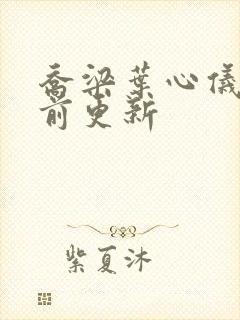 乔梁葉心儀
前更新
紫夏沐